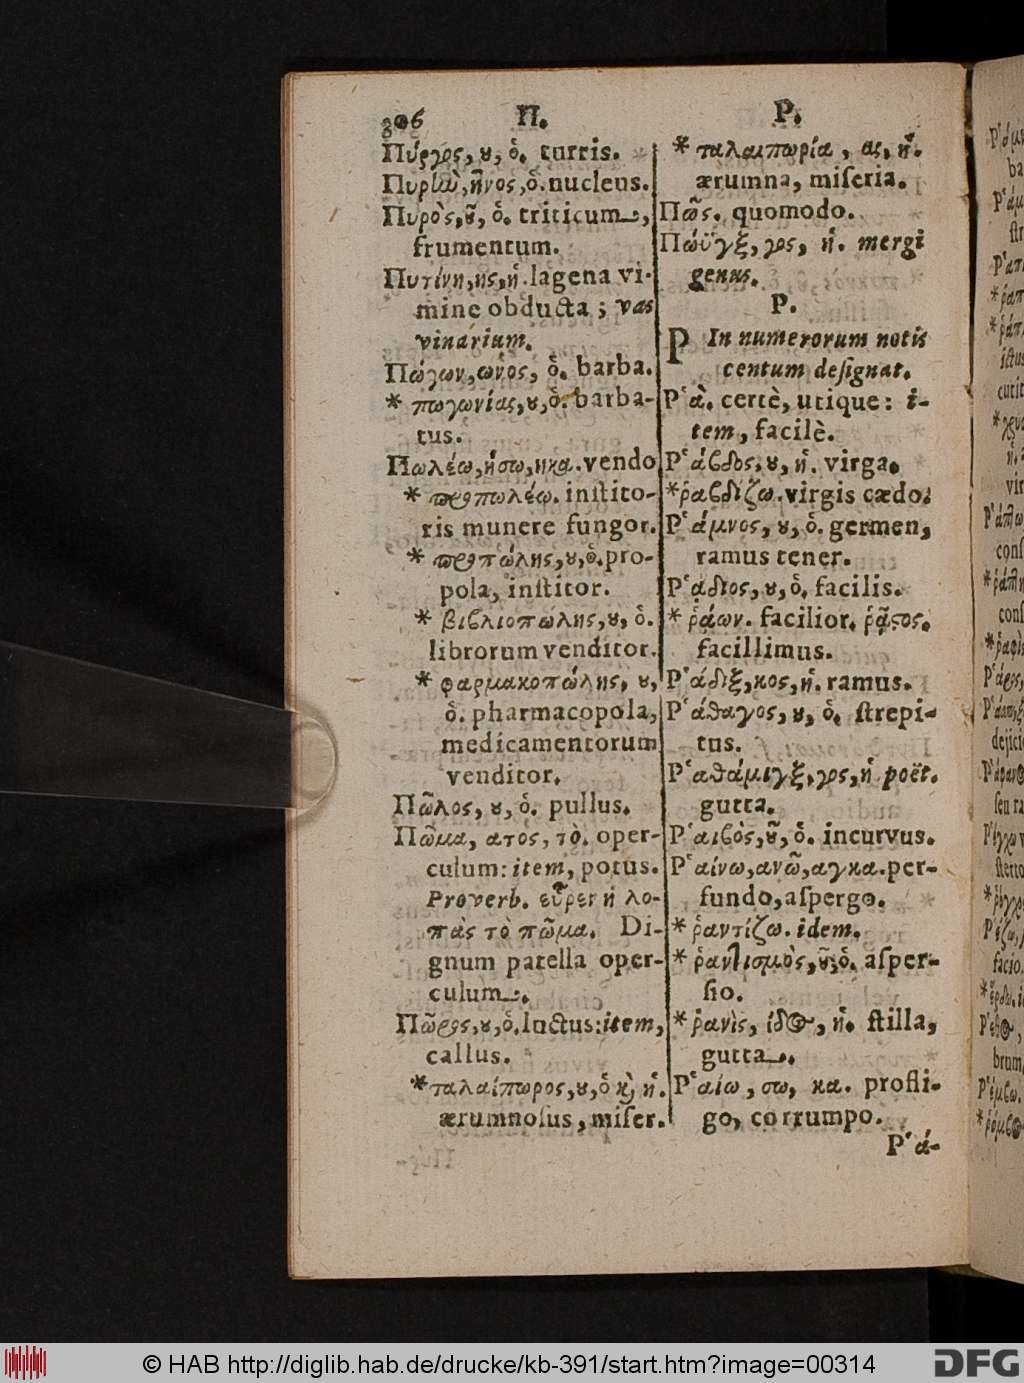 306 Π. Ρ.
Πύργος, ου, ὁ. turris.
Πυρὴν, ῆνος, ὁ. nucleus.
Πυρὸς, οῦ, ὁ. triticum,
frumentum.
Πυτίνη, ης, ἡ. lagena vi-
mine obducta; vas
vinarium.
Πώγων, ωνος, ὁ. barba.
* πωγωνίας, ου, ὁ. barba-
tus.
Πωλέω, ήσω, ηκα. vendo
* προπωλέω. inſtito-
ris munere fungor.
* προπώλης, ου, ὁ. pro-
pola, inſtitor.
* βιβλιοπώλης, ου, ὁ.
librorum venditor.
* φαρμακοπώλης, ου,
ὁ. pharmacopola,
medicamentorum
venditor.
Πῶλος, ου, ὁ. pullus.
Πῶμα, ατος, τὸ. oper-
culum: item, potus.
Proverb. εὗρεν ἡ λο-
πὰς τὸ πῶμα. Di-
gnum patella oper-
culum.
Πῶρος, ου, ὁ. luctus: item,
callus.
* ταλαίπωρος, ου, ὁ καὶ ἡ.
ærumnoſus, miſer.
* ταλαιπωρία, ας, ἡ.
ærumna, miſeria.
Πῶς. quomodo.
Πώϋγξ, γος, ἡ. mergi
genus.
Ρ.
Ρ In numerorum notis
centum deſignat.
Ρ῾ὰ. certè, utique: i-
tem, facilè.
Ρ῾άβδος, ου, ἡ. virga.
* ῥαβδίζω. virgis cædo.
Ρ῾άμνος, ου, ὁ. germen,
ramus tener.
Ρ῾ᾴδιος, ου, ὁ. facilis.
* ῥᾴων. facilior. ῥᾷστος.
facillimus.
Ρ῾άδιξ, κος, ἡ. ramus.
Ρ῾άθαγος, ου, ὁ. ſtrepi-
tus.
Ρ῾αθάμιγξ, γος, ἡ poët.
gutta.
Ρ῾αιβὸς, οῦ, ὁ. incurvus.
Ρ῾αίνω, ανῶ, αγκα. per-
fundo, aſpergo.
* ῥαντίζω. idem.
* ῥαντισμὸς, οῦ, ὁ. aſper-
ſio.
* ῥανὶς, ίδος, ἡ. ſtilla,
gutta.
Ρ῾αίω, σω, κα. profli-
go, corrumpo.
Ρ῾ά-
© HAB http://diglib.hab.de/drucke/kb-391/start.htm?image=00314
DFG